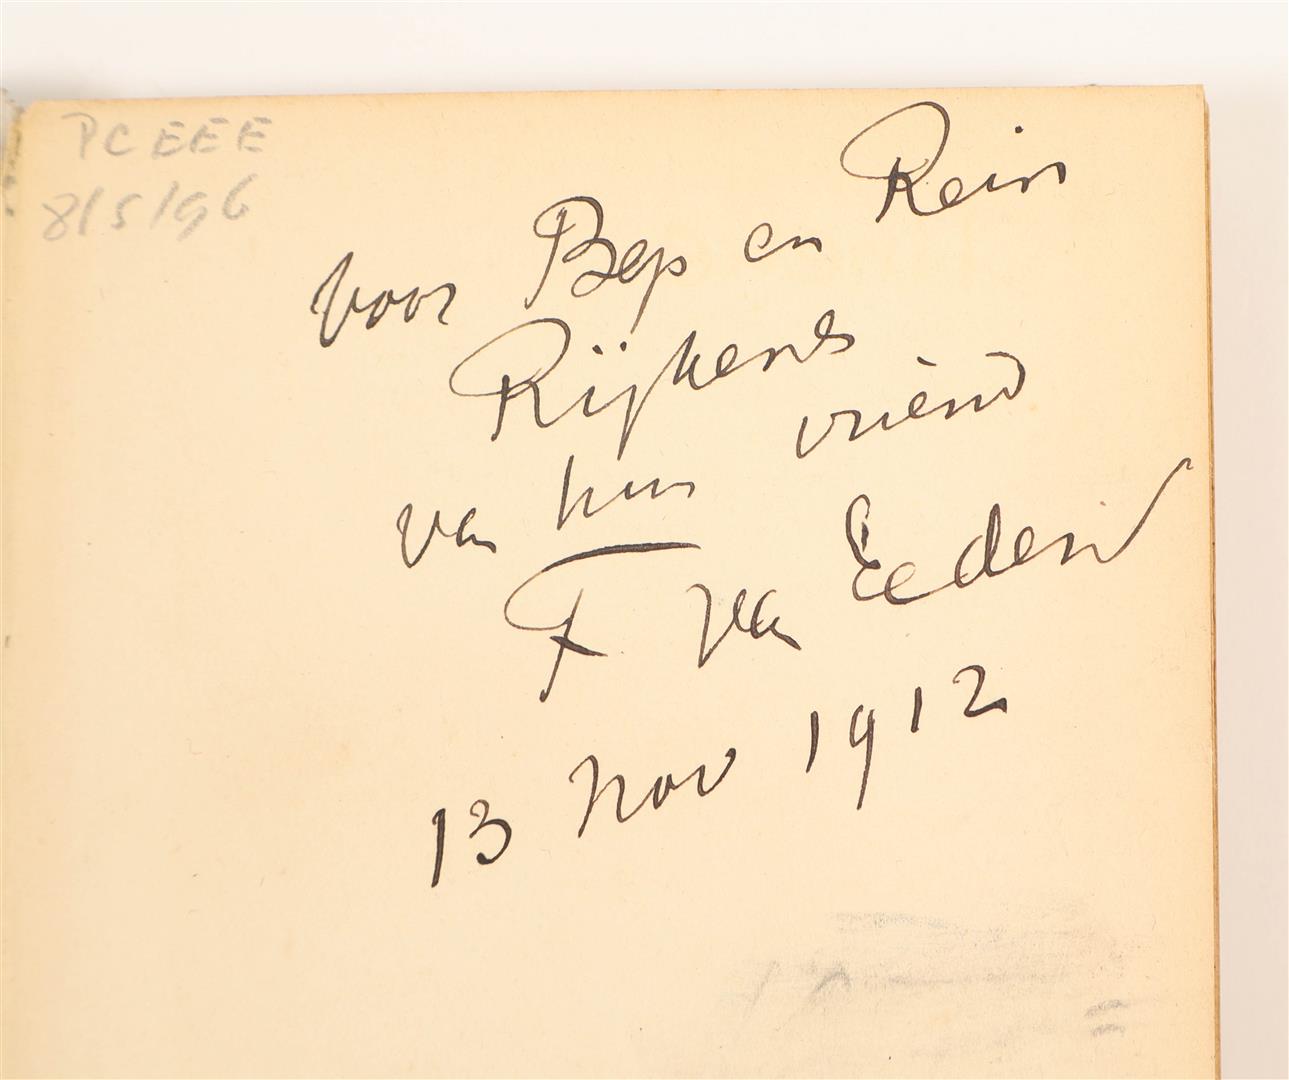 PC EEE
8/5/96
voor Bep en Rein
Rijkens
van hun vriend
F van Eeden
13 Nov 1912